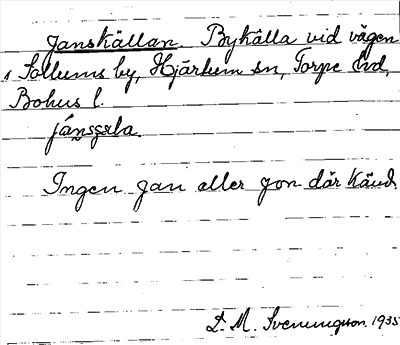 Janskällan. Bykälla vid vägen
i Sollums by, Hjärtum sn, Torpe hd,
Bohus l.
Ingen Jan eller Jon där känd.
D. M. Svenningson 1935